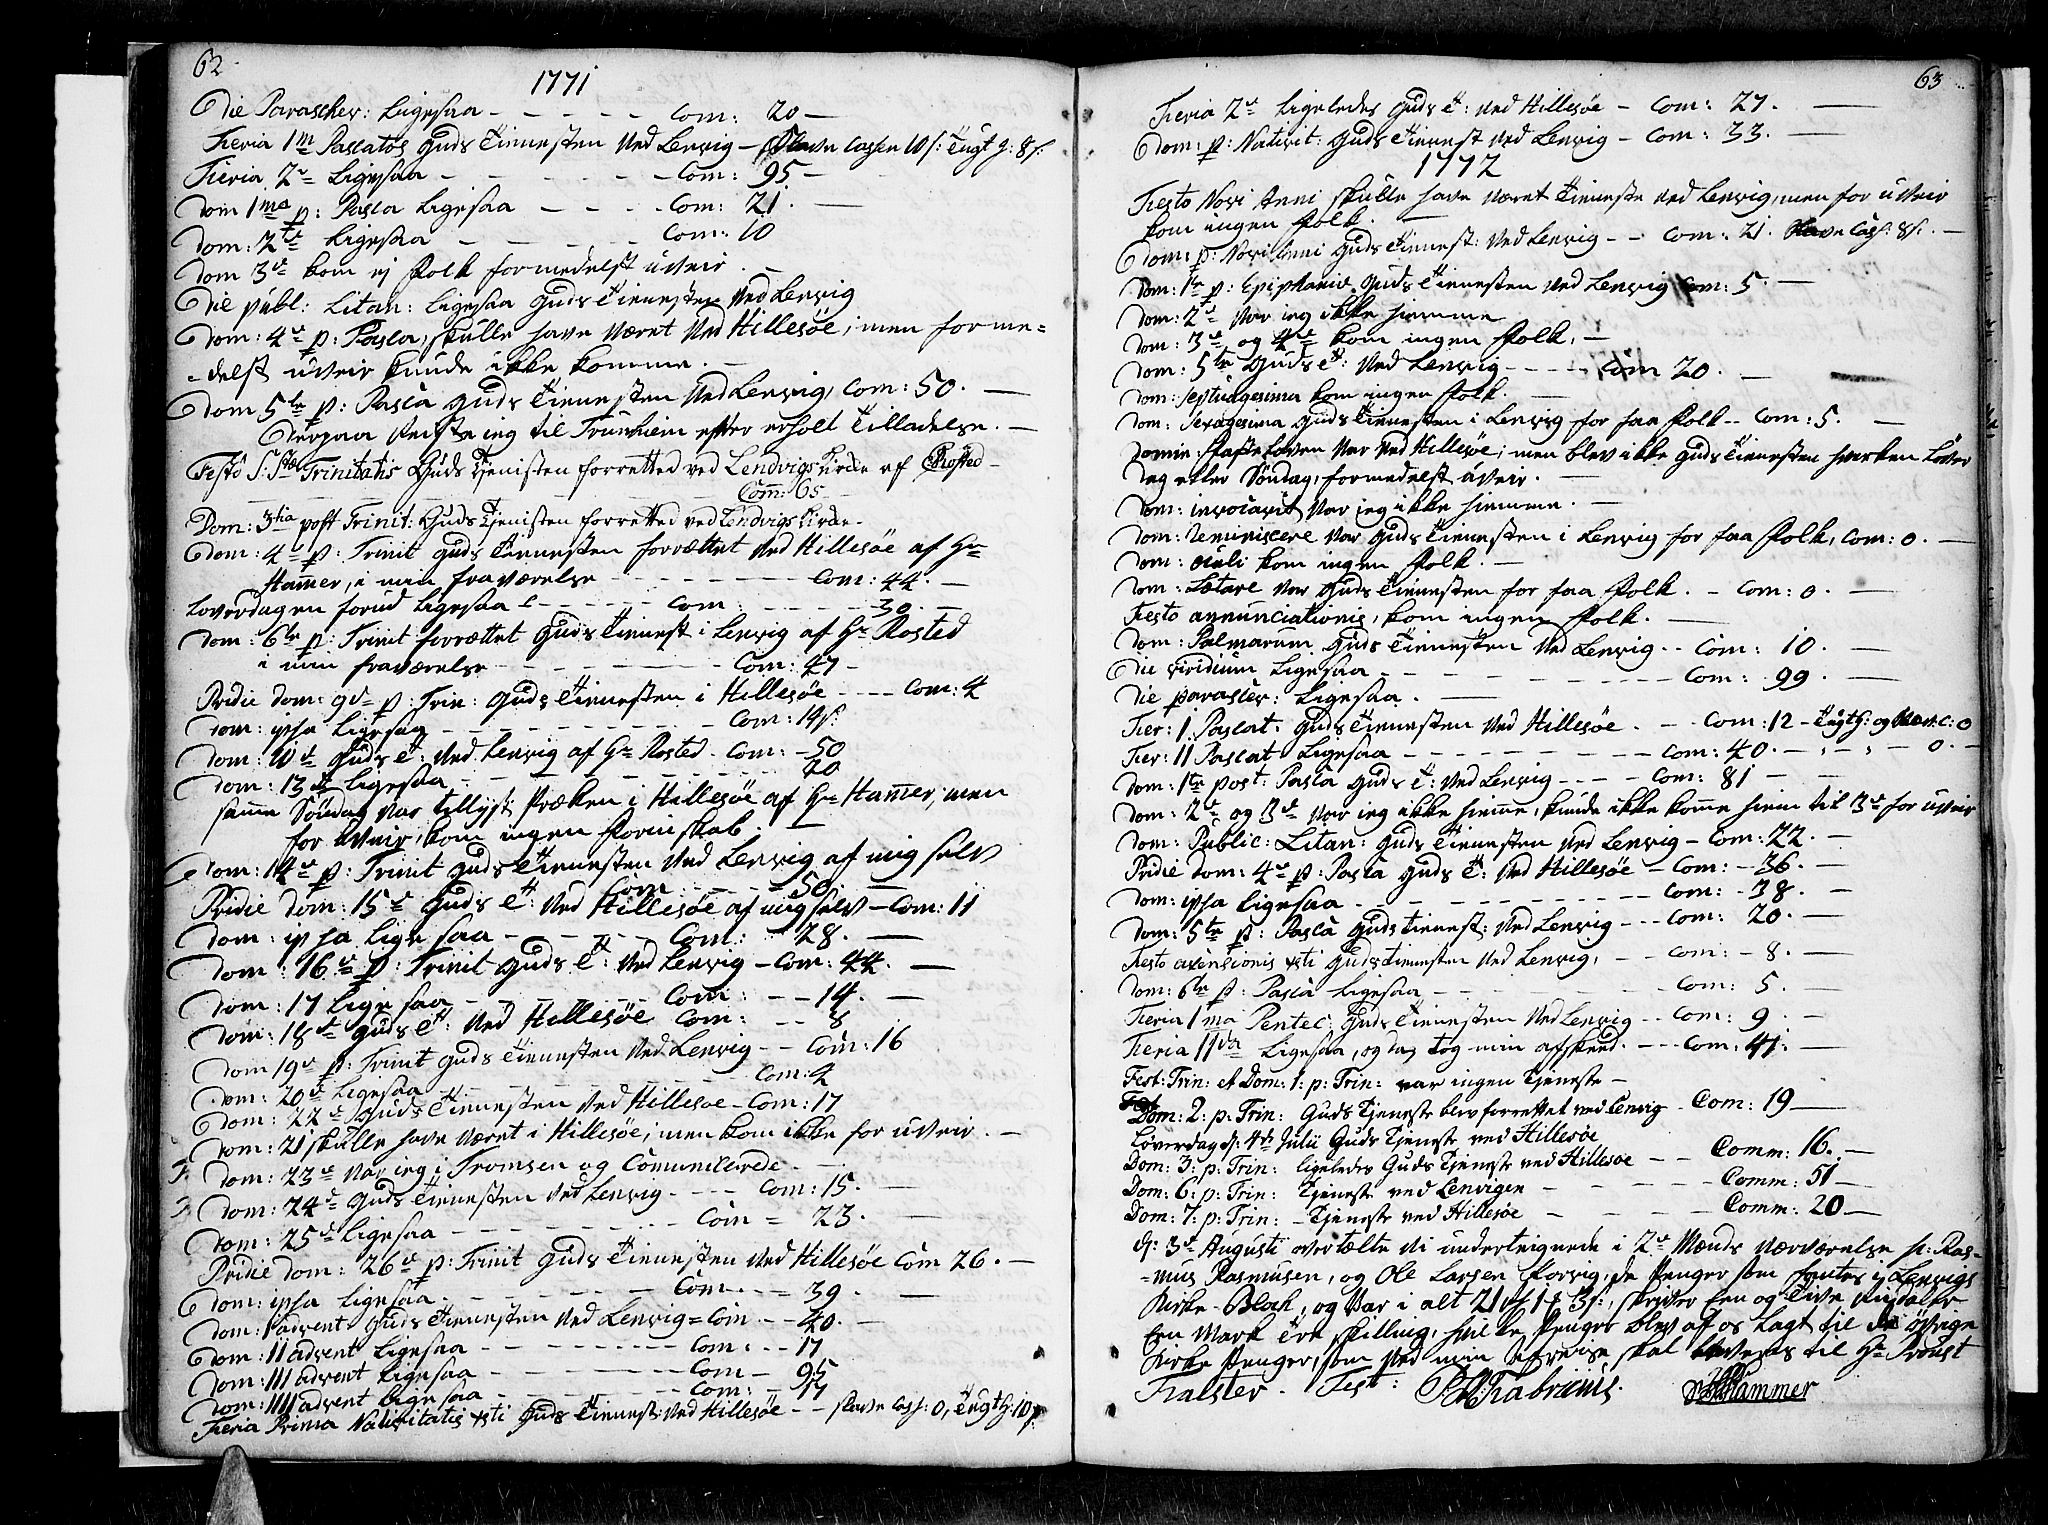 62
1771
Die Paraschev: Ligesaa - - - - - Com: 20 -
Feria 1m Pascatos Guds Tienesten ved Lenvig - Slave Cassen 10 s: Tugt h: 8 s:
Feria 2de Ligesaa - - - - - Com: 95 -
Dom 1ma p: Pasca Ligesaa - - - Com: 21. -
Dom: 2de Ligesaa - - - - - Com: 10
Dom 3de kom ej Folk formedelst uveir. -
Die publ: Litan: Ligesaa Guds Tienesten ved Lenvig
Dom: 4de p: Pasca, skulle have været ved Hillesøe, men forme=
=delst uveir kunde ikke komme. -
Dom 5te p: Pasca Guds Tienesten ved Lenvig, Com: 50. -
Derpaa reiste ieg til Trunhiem efter erholt Tilladelse. -
Festo S:Stæ Trinitatis Guds Tjenisten forretted ved Lendvigs Kirke af Rosted -
Com: 65 -
Dom: 3tia post Trinit: Guds Tjenisten forretted ved Lendvigs Kirke -
Dom: 4de p: Trinit Guds Tienesten forrættet ved Hillesøe af Hr
Hamer, i min fraværelse - - - - - Com: 44. -
Loverdagen forud Ligesaa - - - - Com: - - - 30. -
Dom: 6te p: Trinit forrættet Guds Tienest i Lenvig af Hr Rosted
i min fraværelse - - - - - Com: 47 -
Pridie dom: 9de p: Trin: Guds Tienesten i Hillesøe - - - Com: 4
Dom: ipsa Ligesaa - - - - - Com: 14
Dom: 10de Guds T: ved Lenvig af Hr Rosted - Com: - 50
Dom: 13de Ligesaa - - - - - 20
same Søndag var tillyst Præken i Hillesøe af Hr Hamer, men
for uveir, kom ingen
Dom: 14de p: Trinit Guds Tienesten ved Lenvig af mig selv
Com - - - - 50. -
Pridie dom: 15de Guds T: ved Hillesøe af mig selv - Com: 11
Dom: ipsa Ligesaa - - - - Com: - 28. -
Dom: 16de p: Trinit Guds T: ved Lenvig - Com: 44. -
Dom: 17 Ligesaa - - - - - Com: - - 14. -
Dom: 18de Guds T: ved Hillesøe Com: - - 8
Dom 19de p: Trinit Guds Tienesten ved Lenvig - - Com: 16
Dom: 20de Ligesaa - - - - - Com: 2
Dom: 22de Guds Tienesten ved Hillesøe - Com: 17
Dom: 21 skulle have været i Hillesøe, men kom ikke for uveir. -
Dom: 23de var ieg i Tromsen og Comunicerede. -
Dom: 24de Guds Tienesten ved Lenvig. - - - Com: 15. -
Dom: 25de Ligesaa - - - - - Com = 23. -
Pridie dom: 26de p: Trinit Guds Tienesten ved Hillesøe Com 26. -
Dom: ipsa Ligesaa. - - - - - Com. - - 39. -
Dom: 1 advent Guds Tienesten ved Lenvig = Com - - 40. -
Dom: II advent Ligesaa - - - - - Com: - - 17
Dom: III advent Ligesaa - - - - - Com - 95
Dom: IIII advent Ligesaa - - - - - Com: - 17
Feria Prima Nativitatis xsti Guds Tienest: ved Hillesøe - - slave Cass: 0, Tugth: 10 s
63
Feria 2de Ligeledes Guds T: ved Hillesøe - Com: 27. -
Dom: p: Nativit: Guds Tienest ved Lenvig - Com: 33. -
1772
Festo Novi Anni skulle have været Tieneste ved Lenvig, men for uveir
kom ingen Folk. -
Dom: p: Novi Anni Guds Tienest: ved Lenvig - - Com: 21. Slave Cass: 8 s. -
Dom: 1te p: Epiphanie Guds Tienesten ved Lenvig Com: 5. -
Dom: 2de var ieg ikke hiemme
Dom: 3de og 4de kom ingen Folk. -
Dom: 5te Guds T: ved Lenvig - - - - Com 20. -
Dom: Septuagesima kom ingen Folk. -
Dom: Sexagesima Guds Tienesten i Lenvig for faa Folk - - Com: 5. -
Domin: Fasteloven var ved Hillesøe, men blev ikke Guds Tienesten hverken Løver
dag eller Søndag, formedelst uveir. -
Dom: invocavit var ieg ikke hiemme. -
Dom: Reminiscere var Guds Tienesten i Lenvig for faa Folk, Com: 0. -
Dom: oculi kom ingen Folk. -
Dom: Lætare var Guds Tienesten for faa Folk. - Com: 0. -
Festo annunciationis, kom ingen Folk. -
Dom: Palmarum Guds Tienesten ved Lenvig - - Com: 10. -
Die viridium Ligesaa - - - - - Com: 99. -
Die parascev: Ligesaa. -
Fer: 1. Pascat: Guds Tienesten ved Hillesøe. - - Com: 12 - Tugth: og slav: c: 0
Fer: 11 Pascat Ligesaa - - - - - Com: 40. - , - , - 0. -
Dom: 1te post: Pasca Guds T: ved Lenvig - - - - Com: 81 - -
Dom: 2de og 3de var ieg ikke hieme, kunde ikke kome hiem til 3de for uveir
Dom: Public: Litan: Guds Tienesten ved Lenvig - Com: 22. -
Pridie dom: 4de p: Pasca Guds T: ved Hillesøe - Com: - 36. -
Dom: ipsa Ligesaa - - - - - Com: - 38. -
Dom: 5te p: Pasca Guds Tienest: ved Lenvig - - - Com: 20. -
Festo ascensionis xsti Guds Tienesten ved Lenvig, - - Com: - 8. -
Dom: 6te p: Pasca Ligesaa - - - - Com: 5. -
Feria 1ma Pentec: Guds Tienesten ved Lenvig - - Com: 9. -
Feria 11da Ligesaa, og dag tog min afskeed. - - - Com: 41. -
Fest: Trin: et Dom: 1: p: Trin: var ingen Tjeneste -
Dom: 2: p: Trin: Guds Tjeneste blev forrettet ved Lenvig - Com: 19 -
Løverdag d: 4de Julii Guds Tjeneste ved Hillesøe
Dom: 3: p: Trin: ligeledes Guds Tjeneste ved Hillesøe - - Comm: 16. -
Dom: 6: p: Trin: Tjeneste ved Lenvigen - - - - Comm: 51 -
Dom: 7: p: Trin: - Tjeneste ved Hillesøe - - - - Comm: 20 -
d: 3de Augusti overtælte vi undertegnede i 2de Mænds nærværelse sc: Ras=
=mus Rasmusen, og Ole Larsen Forvig, de Penger som fantes i Lenvigs
Kirke-Block, og var i alt 21 rd 1 3 s:, skriver Een og Tive rixdaler
Een Mark Tre skilling, hvilke Penger blev af os Lagt til de øvrige
Kirke Penger, som ved min afreise skal leveres til Hr Provst
Falster. Test: Fabricius. Hammer